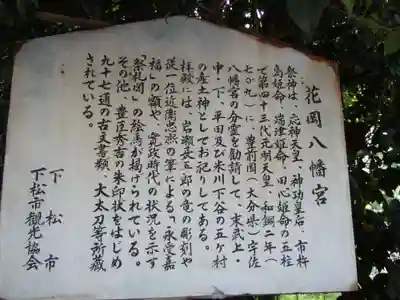 花岡八幡宮
祭神は、応神天皇・神功皇后・市杵
島姫命・湍津姫命・田心姫命の五柱
で第四十三代元明天皇・和銅二年(
七〇九)に、豊前国(大分県)宇佐
八幡宮の分霊を勧請して、末武上・
中・下、平田及び米川下谷の五ケ村
の産土神としてお祀りしてある。
拝殿には、岩瀬長三郎の竜の彫刻や
従一位近衛忠煕の筆による「永受嘉
福」の額や、寛政時代の状況を示す
「祭礼図」の絵馬が掲げられている。
その他、豊臣秀吉の朱印状をはじめ
九十七通の古文書類・大太刀等所蔵
されている。
下松市
下松市観光協会